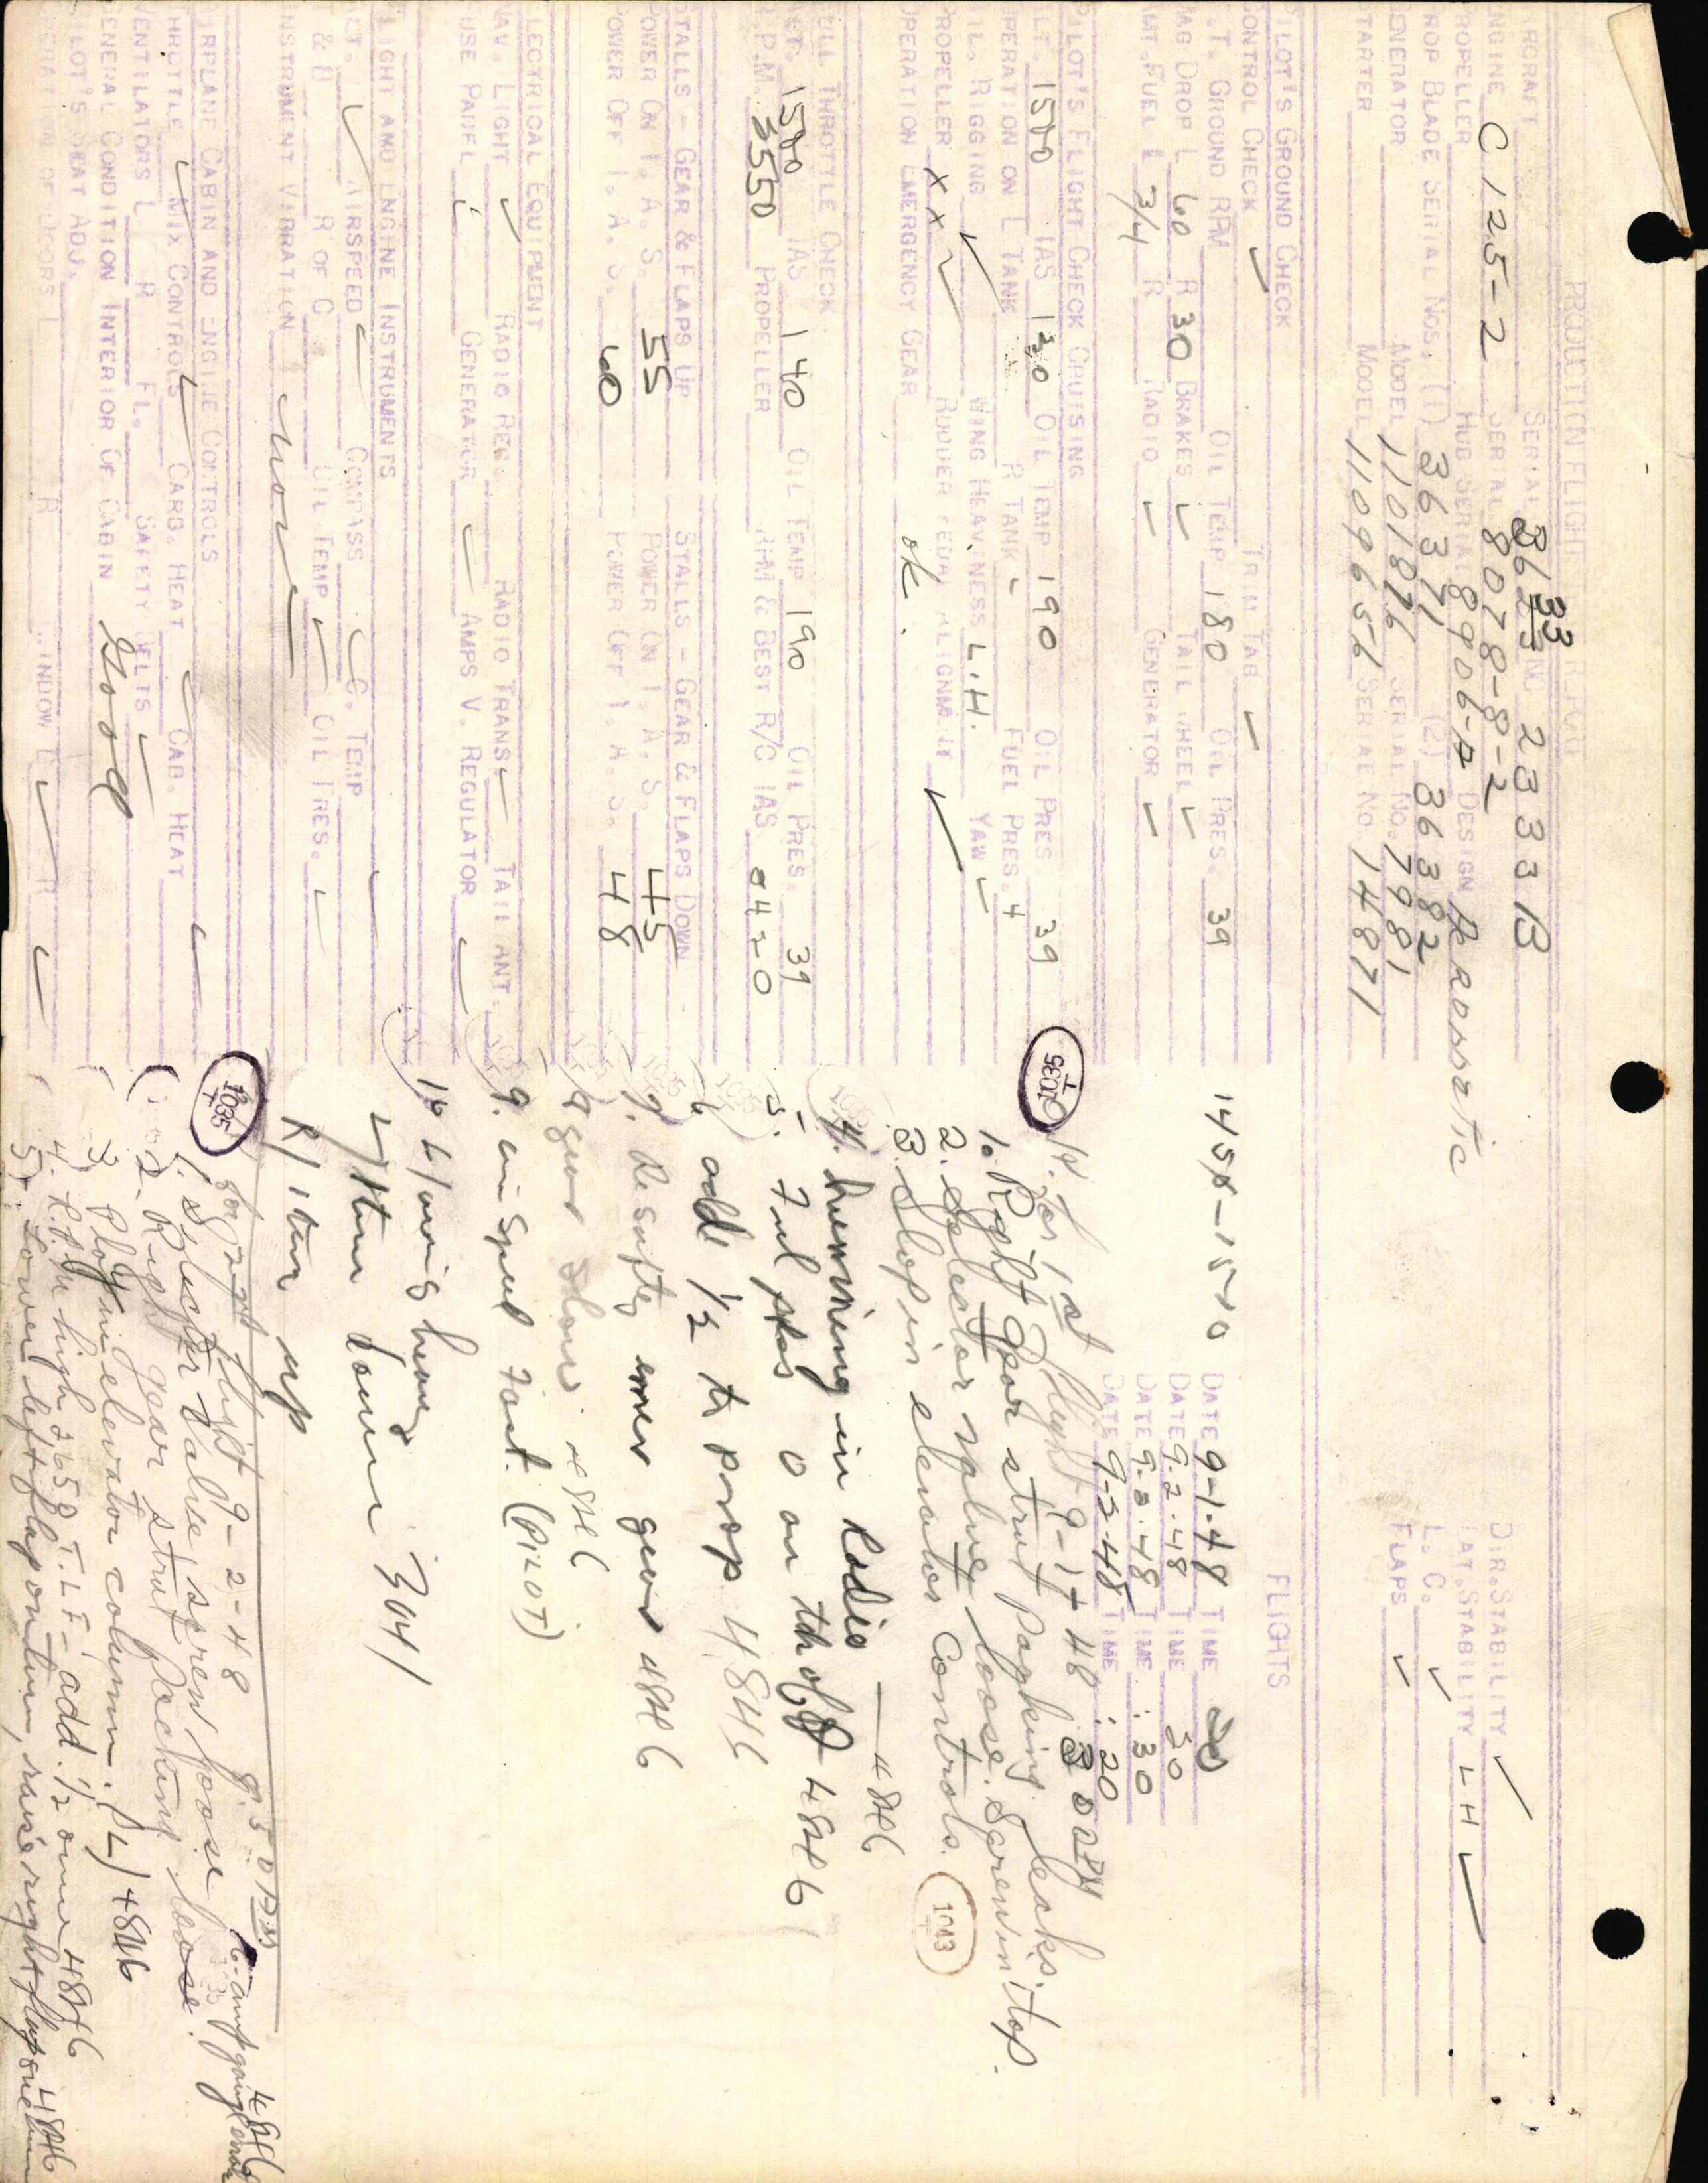 PRODUCTION FLIGHT REPORT
AIRCRAFT SERIAL 3623 33 NC 2333B DIR. STABILITY ✓
ENGINE C125-2 SERIAL 8078-8-2 LAT. STABILITY LH ✓
PROPELLER HUB SERIAL 8906-A DESIGN Aeromatic L. C. ✓
PROP BLADE SERIAL NOS. (1) 36371 (2) 36382 FLAPS ✓
GENERATOR MODEL 1101876 SERIAL NO. 7981
STARTER MODEL 1109656 SERIAL NO. 14871
PILOT'S GROUND CHECK FLIGHTS
CONTROL CHECK ✓ TRIM TAB ✓
S.T. GROUND RPM OIL TEMP 180 OIL PRES. 39 DATE 9-1-48 TIME 30
MAG DROP L 60 R 30 BRAKES ✓ TAIL WHEEL ✓ DATE 9-2-48 TIME 30
AMT. FUEL L 3/4 R RADIO ✓ GENERATOR ✓ DATE 9-2-48 TIME :30
DATE 9-2-48 TIME :20
PILOT'S FLIGHT CHECK CRUISING
ALT. 1500 IAS 130 OIL TEMP 190 OIL PRES 39
OPERATION ON L TANK R TANK FUEL PRES. 4
TAIL RIGGING ✓ WING HEAVINESS L.H. YAW ✓
PROPELLER XX ✓ RUDDER PEDAL ALIGNMENT ✓
OPERATION EMERGENCY GEAR ok.
FULL THROTTLE CHECK
ALT. 1500 IAS 140 OIL TEMP 190 OIL PRES. 39
R.P.M. 3550 PROPELLER RPM & BEST R/C IAS
STALLS - GEAR & FLAPS UP STALLS - GEAR & FLAPS DOWN
POWER ON I. A. S. 55 POWER ON I. A. S. 45
POWER OFF I. A. S. 60 POWER OFF I. A. S. 48
ELECTRICAL EQUIPMENT
NAV. LIGHT ✓ RADIO REC. RADIO TRANS ✓ TAIL ANT.
FUSE PANEL GENERATOR ✓ AMPS V. REGULATOR ✓
FLIGHT AND ENGINE INSTRUMENTS
ALT. ✓ AIRSPEED ✓ COMPASS ✓ C. TEMP ✓
T & B R OF C OIL TEMP ✓ OIL PRES. ✓
INSTRUMENT VIBRATION none
AIRPLANE CABIN AND ENGINE CONTROLS
THROTTLE ✓ MIX CONTROLS ✓ CARB. HEAT ✓ CAB. HEAT ✓
VENTILATORS L R FL. SAFETY BELTS ✓
GENERAL CONDITION INTERIOR OF CABIN Good
PILOT'S SEAT ADJ.
OPERATION OF DOORS L R WINDOW L ✓ R ✓
for 1st flight 9-1-48
1. Right gear strut packing leaks.
2. Selector valve loose. Screw in top.
3. Slop in elevator controls.
1043
4. humming in Radio — 4846
5. Fuel pres 0 on th off 4846
6 add 1/2 to prop 4846
7. emer gear 4846
8 gear 4846
9. air speed fast. (PILOT)
10 L/wing heavy
L/ turn down 3041
R/ 1 turn up
1035
for 2nd flight 9-2-48
1. Selector Valve screw loose
2. Right gear strut packing loose.
3 Play in elevator column. (L) 4846
4. R.P.M. high 2658 T.L.F. add. 1/2 4846
5. Lower left flap one turn, raise right flap one turn 4846